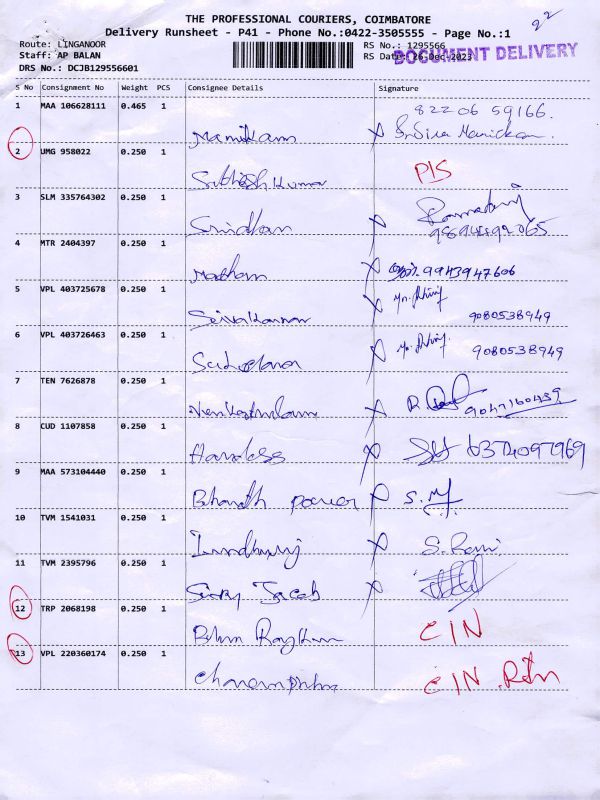 22
THE PROFESSIONAL COURIERS, COIMBATORE
Delivery Runsheet - P41 - Phone No.:0422-3505555 - Page No.:1
Route: LINGANOOR
RS No.: 1295566
Staff: AP BALAN
RS Date: 26-Dec-2023
DOCUMENT DELIVERY
DRS No.: DCJB129556601
S No Consignment No Weight PCS Consignee Details Signature
1 MAA 106628111 0.465 1 82206 59166.
Manikam X
2 UMG 958022 0.250 1 PIS
Sathish Kumar
3 SLM 335764302 0.250 1
Sridhan X
4 MTR 2404397 0.250 1
X 9943947606
5 VPL 403725678 0.250 1
X 9080538949
6 VPL 403726463 0.250 1
X 9080538949
7 TEN 7626878 0.250 1
X R
8 CUD 1107858 0.250 1
X 6374097969
9 MAA 573104440 0.250 1
Bharath power X S.M
10 TVM 1541031 0.250 1
X S. Rani
11 TVM 2395796 0.250 1
Jacob X
12 TRP 2068198 0.250 1
CIN
13 VPL 220360174 0.250 1
CIN Rtn